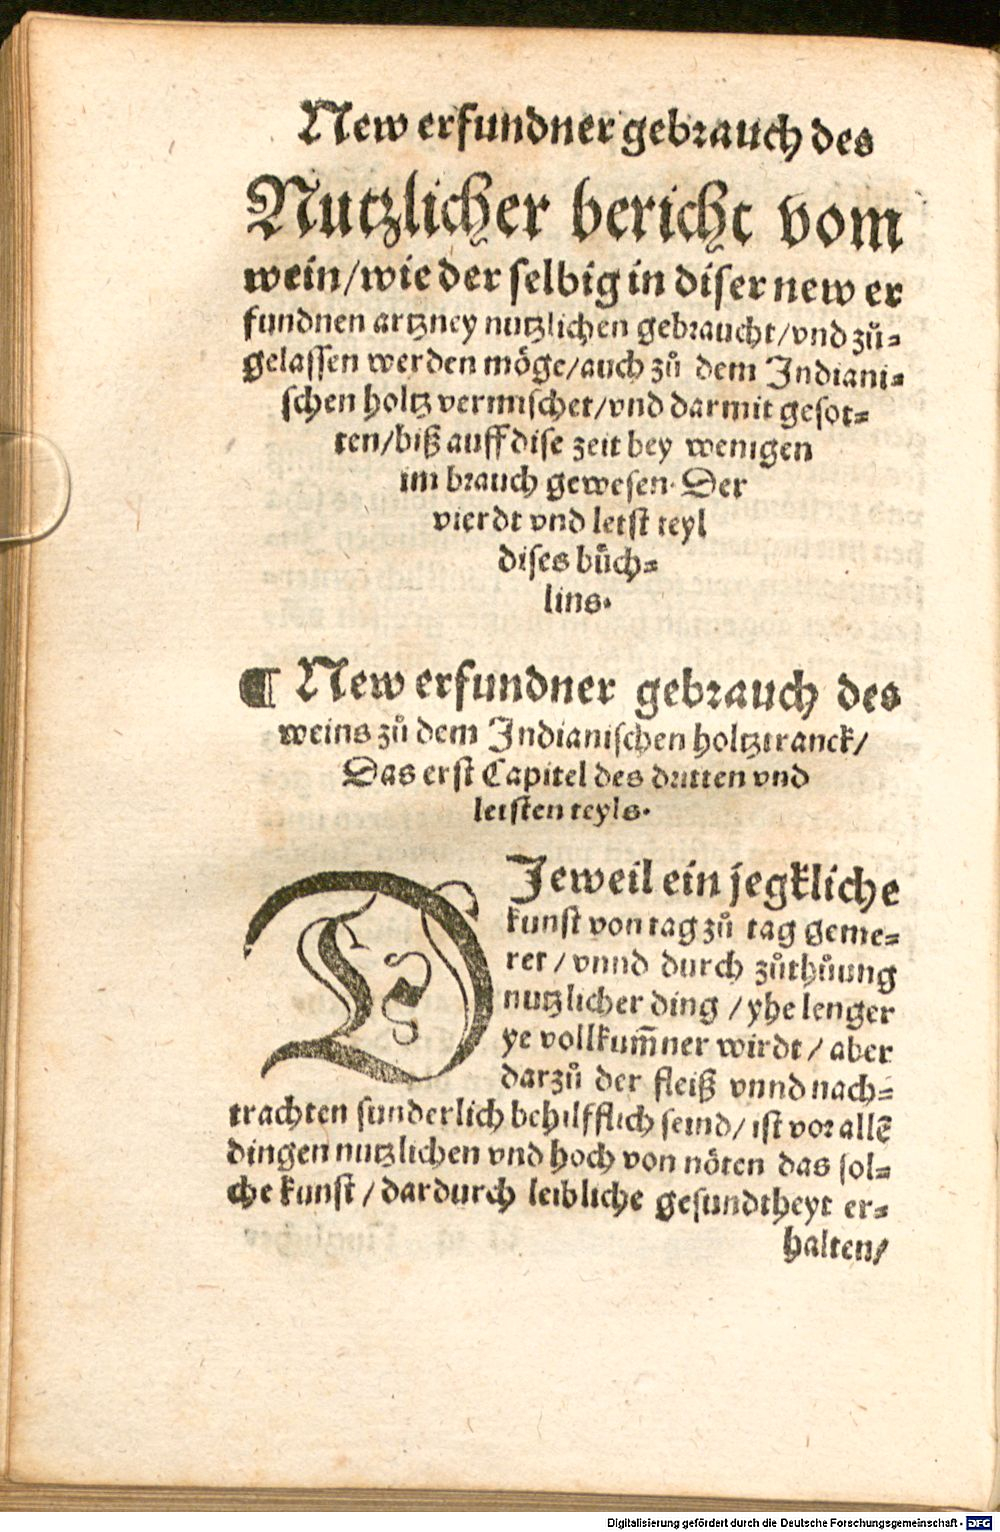 New erfundner gebrauch des
Nutzlicher bericht vom
wein/wie der selbig in diser new er
fundnen artzney nutzlichen gebraucht/vnd zů-
gelassen werden möge/auch zů dem Indiani-
schen holtz vermischet/vnd darmit gesot-
ten/biß auff dise zeit bey wenigen
im brauch gewesen. Der
vierdt vnd letst teyl
dises bůch-
lins.
¶ New erfundner gebrauch des
weins zů dem Indianischen holtztranck/
Das erst Capitel des dritten vnd
letsten teyls.
DJeweil ein jegkliche
kunst von tag zů tag geme-
ret/vnnd durch zůthůung
nutzlicher ding/yhe lenger
ye vollkum̃ner wirdt/aber
darzů der fleiß vnnd nach-
trachten sunderlich behilfflich seind/ist vor allẽ
dingen nutzlichen vnd hoch von nöten das sol-
che kunst/dardurch leibliche gesundtheyt er-
halten/
Digitalisierung gefördert durch die Deutsche Forschungsgemeinschaft - DFG